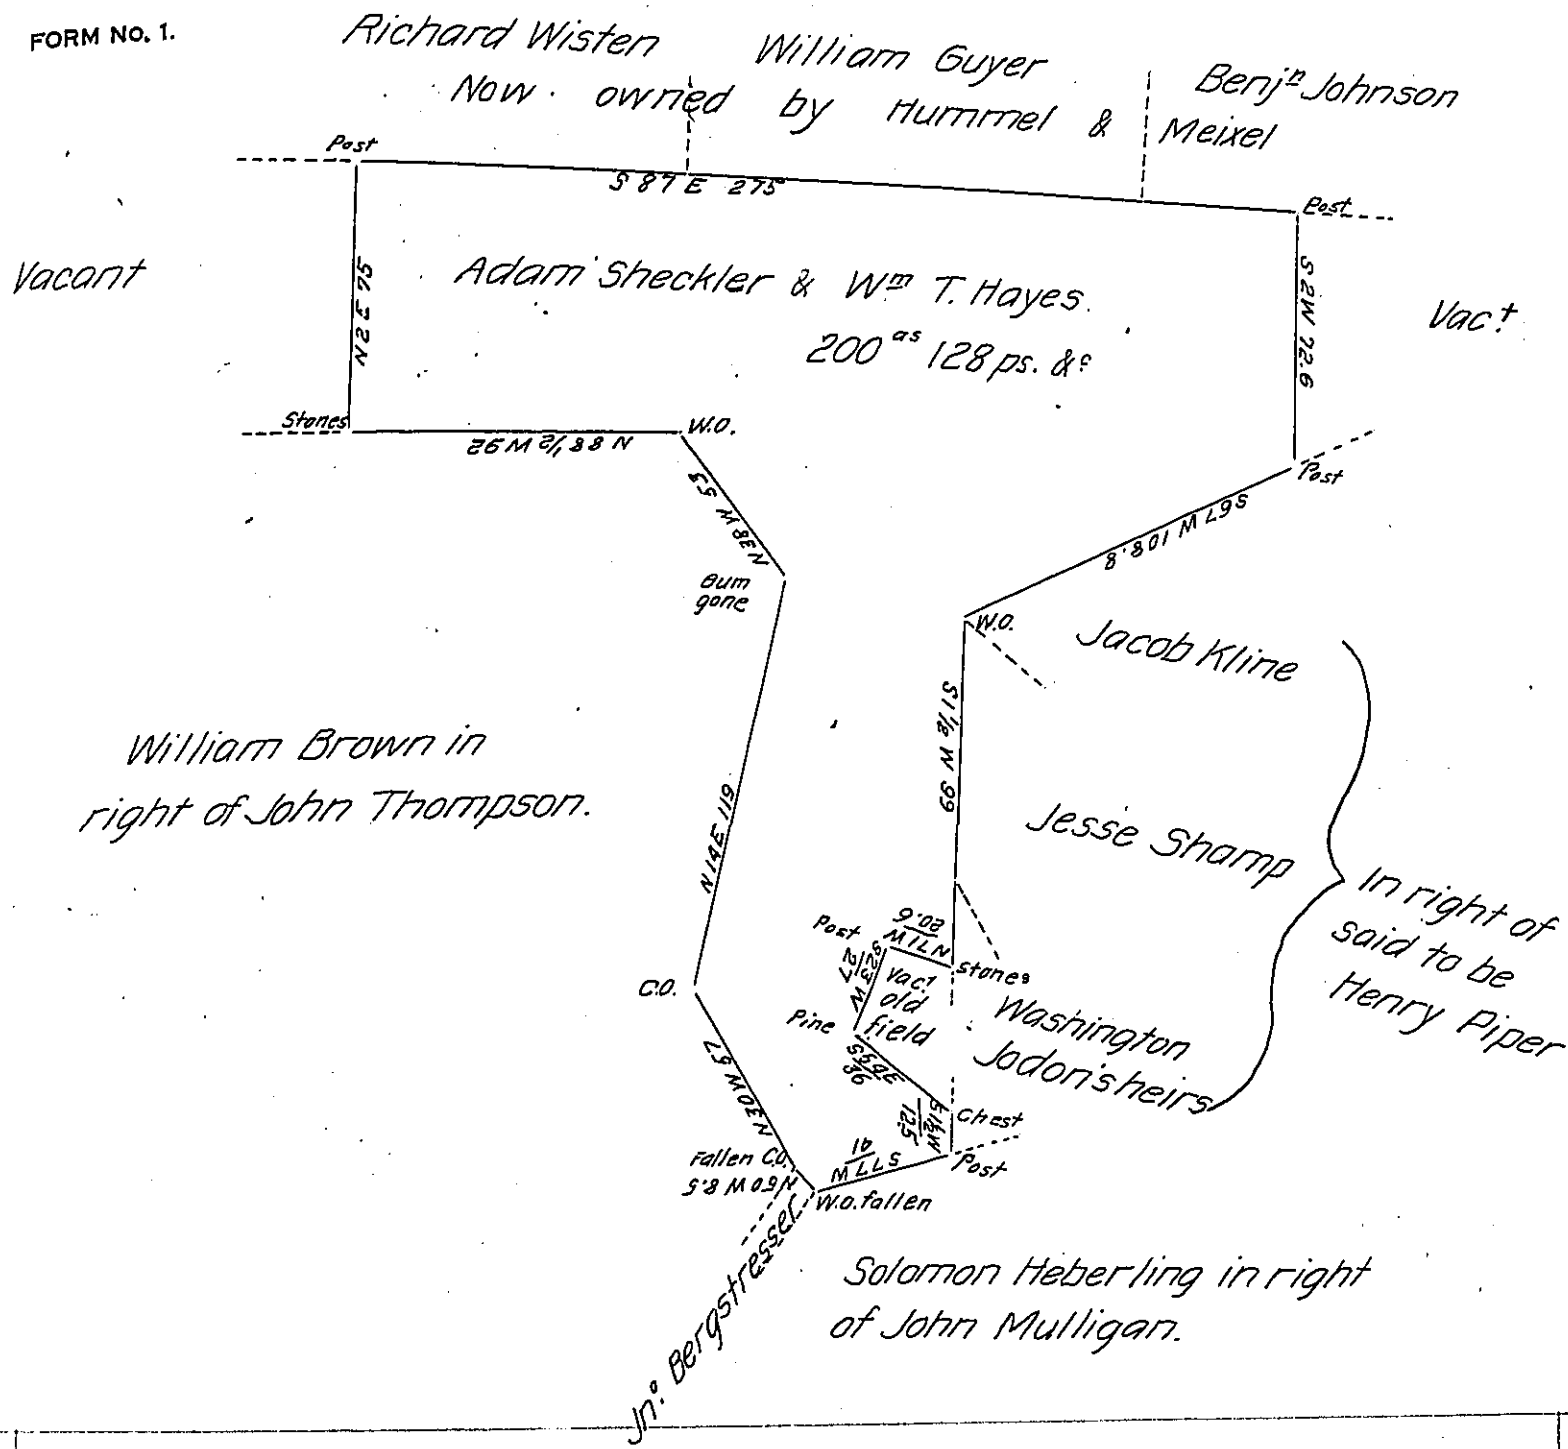 FORM No. 1.
Richard Wisten William Guyer Benjⁿ Johnson
Now owned by Hummel & Meixel
Post
S 87 E 275
Post
Vacant
N 2 E 75
Adam Sheckler & Wᵐ T. Hayes.
200 ᵃˢ 128 ps. &ᶜ
S 2W 72.6
Vacᵗ
Stones
N 88 1/2 W 92
W.O.
N 38 W 53
Post
S 67 W 108.8
Gum
gone
W.O.
Jacob Kline
S 1 1/2 W 99
William Brown in
right of John Thompson.
N 14 E 119
Jesse Shamp
In right of
said to be
Henry Piper
Post
N 71 W
20.6
stones
S 23 W
27
vacᵗ
old
field
C.O.
Pine
Washington
Jodon's heirs
S 59 E
36
N 30 W 57
Chest
S 1 1/2 W
12.5
Fallen C.O.
N 50 W 8.5
S 77 W
41
Post
W.O. fallen
Jnᵒ Bergstresser
Solomon Heberling in right
of John Mulligan.